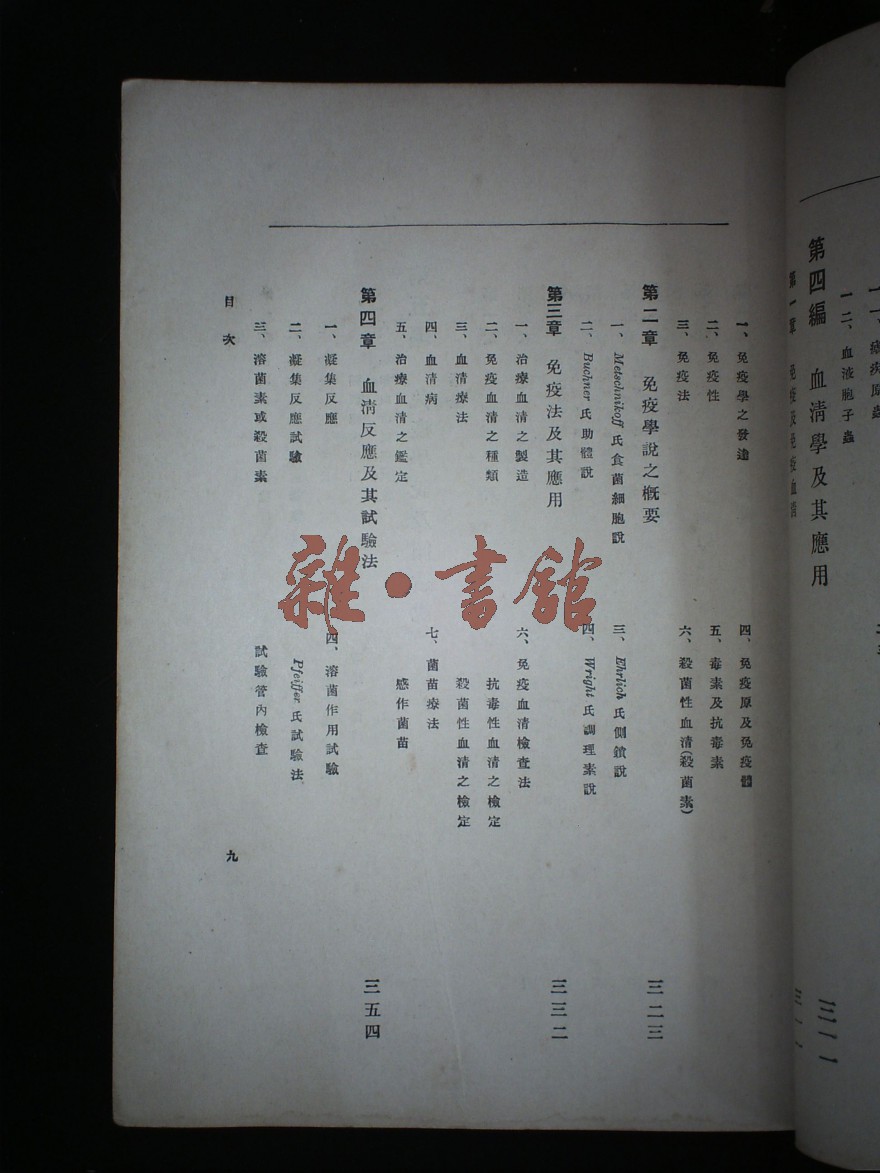 一二、血液胞子蟲
第四編　血清學及其應用
三一一
第一章
一、免疫學之發達
四、免疫原及免疫體
二、免疫性
五、毒素及抗毒素
三、免疫法
六、殺菌性血清(殺菌素)
第二章　免疫學說之概要
三二三
一、Metschnikoff 氏食菌細胞說
三、Ehrlich 氏側鎖說
二、Buchner 氏助體說
四、Wright 氏調理素說
第三章　免疫法及其應用
三三二
一、治療血清之製造
六、免疫血清檢查法
二、免疫血清之種類
抗毒性血清之檢定
三、血清療法
殺菌性血清之檢定
四、血清病
七、菌苗療法
五、治療血清之鑑定
感作菌苗
第四章　血清反應及其試驗法
三五四
一、凝集反應
四、溶菌作用試驗
二、凝集反應試驗
Pfeiffer 氏試驗法
三、溶菌素或殺菌素
試驗管內檢查
目次
九
雜·書館